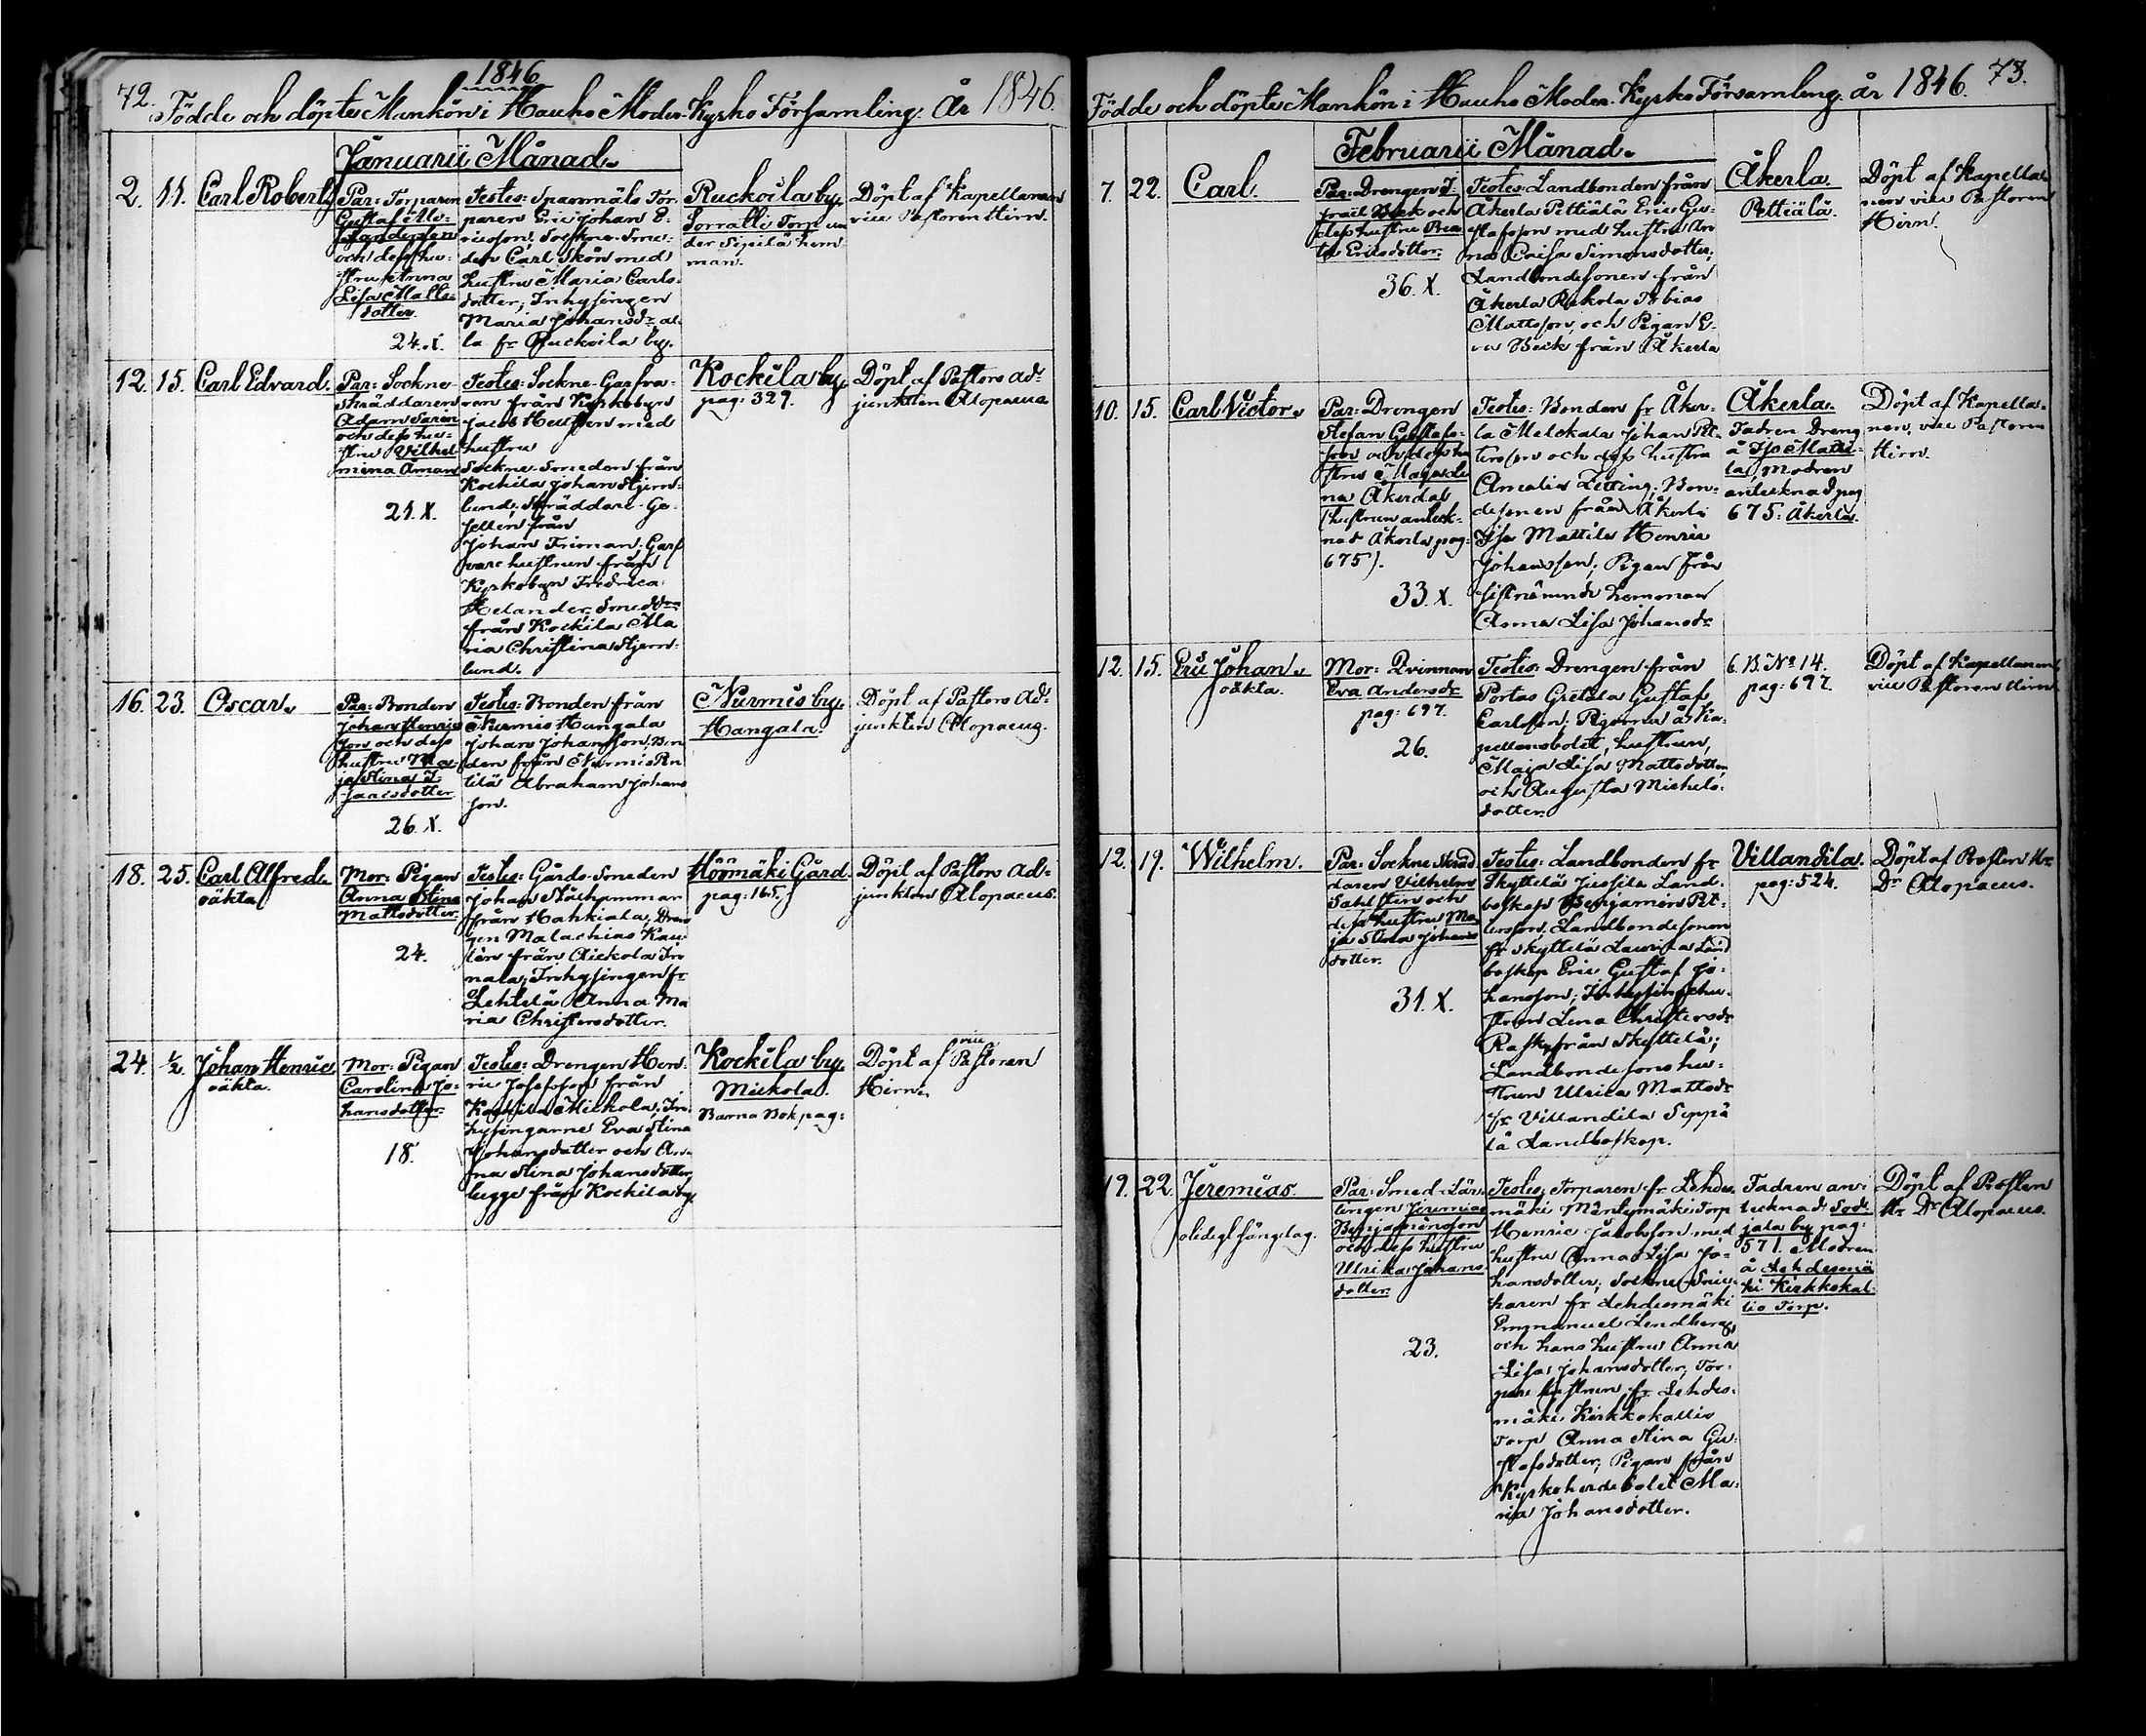 1846
72. Födde och döpte Mankön i Hauho Moder-Kyrko Församling: År 1846.
Januarii Månad.
2. 11. Carl Robert
Par: Torparen
Gustaf
och dess hu-
stru Anna
Lisa Matts-
dotter.
24. X.
Testes: Spannmåls Tor-
paren Eric Johan E-
ricsson, Sockne-Sme-
den Carl Skön med
hustru Maria Carls-
dotter, Inhysingen
Maria Johansdr al-
la fr Ruckoila by.
Ruckoila by.
Sorralli Torp un
der Sipilä hem
man.
Döpt af Kapellanen
vice Pastoren Hirn.
12. 15. Carl Edvard.
Par: Sockne-
skräddaren
Adam Sarén
och dess hu-
stru Vilhel
mina Åman
21. X.
Testes: Sockne-Garfva-
ren från Kyrkobyn
Jacob med
hustru
Sockne-Smeden från
Kockila Johan Stjern-
lund, Skräddare-Ge-
sellen från
Johan Friman, Garf
vare hustrun från
Kyrkobyn Fredrica
Helander, Smeddrn
från Kockila Ma
ria Christina Stjern-
lund.
Kockila by.
pag: 329.
Döpt af Pastors ad-
junkten Alopaeus
16. 23. Oscar.
Par: Bonden
Johan Henrics
son och dess
hustru Ma-
ja Stina I-
sacsdotter
26. X.
Testes: Bonden från
Nurmis Hangala
Johan Johansson, Bon
den från Nurmis Pen
tilä Abraham Johans
son.
Nurmis by.
Hangala.
Döpt af Pastors Ad-
junkten Alopaeus.
18. 25. Carl Alfred
oäkta
Mor: Pigan
Anna Stina
Mattsdotter.
24.
Testes: Gårds-Smeden
Johan Stålhammar
från Hahkiala, Dren
gen Malachias Kau-
lén från Aickola In
nala, Inhysingen fr
Lehtelä Anna Ma
ria Christersdotter.
Hövmäki Gård.
pag: 165.
Döpt af Pastors Ad-
junkten Alopaeus.
24. ½. Johan Henric
oäkta.
Mor: Pigan
Carolina Jo-
hansdotter.
18.
Testes: Drengen Hen-
ric Josefsson från
Kockila Mickola, In-
hysingarne Eva Stina
Johansdotter och An-
na Stina Johansdotter,
begge från Kockila by.
Kockila by.
Mickola.
Barna Bok pag:
Döpt af vice Pastoren
Hirn.
73.
Födde och döpte Mankön i Hauho Moder-Kyrko Församling. år 1846.
Februarii Månad.
7. 22. Carl.
Par: Drengen I-
srael Beck och
dess hustru Brea
ta Ericsdotter.
36. X.
Testes: Landbonden från
Åkerla Pettiälä Eric Gu-
stafsson med hustru An
na Caisa Simonsdotter,
Landbondesonen från
Åkerla Rekola Tobias
Mattsson, och Pigan E-
va Beck från Åkerla
Åkerla.
Pettiälä.
Döpt af Kapella-
nen vice Pastoren
Hirn.
10. 15. Carl Victor.
Par: Drengen
Stefan Gustafs-
son och dess hu
stru Magdale
na Åkerdal
(hustrun anteck-
nad Åkerla pag:
675).
33. X.
Testes: Bonden fr Åker-
la Melckala Johan Pet-
tersson och dess hustru
Amalia Zitting, Bon-
desonen från Åkerla
Iso Mattila Henric
Johansson; Pigan från
sistnämnde hemman
Anna Lisa Johansdr
Åkerla.
Fadren Dreng
å Iso Matti-
la, Modren
antecknad pag
675: Åkerla.
Döpt af Kapella-
nen, vice Pastoren
Hirn.
12. 15. Eric Johan.
oäkta.
Mor: Qvinnan
Eva Andersdr
pag: 697.
26.
Testes: Drengen från
Portas Gretila Gustaf
Carlsson; Pigorna å Ka-
pellansbolet, hustrun,
Maja Lisa Mattsdotter
och Augusta Michels-
dotter.
6. B. No 14.
pag: 697.
Döpt af Kapellanen
vice Pastoren Hirn
12. 19. Wilhelm.
Par: Sockne Skräd
daren Vilhelm
Dahlsten och
dess hustru Ma
ja Stina Johans
dotter.
31. X.
Testes: Landbonden fr
Skyttelä Jussila Land-
boskap Benjamin Pet-
tersson, Landbondesonen
fr Skyttelä Laurila Land
boskap Eric Gustaf Jo-
hansson; Inhysingshu-
strun Lena Christersdr
Rask från Skyttelä;
Landbondesons hu-
strun Ulrica Mattsdr
fr Villandila Seppä
lä Landboskap.
Villandila.
pag: 524.
Döpt af Prosten Hr.
Dr Alopaeus.
19. 22. Jeremias.
olidigt sängdag.
Par: Smed-Lär-
lingen Jeremias
Benjaminsson
och dess hustru
Ulrika Johans
dotter.
23.
Testes: Torparen fr. Lehdes-
mäki Mäntymäki Torp
Henric Jacobsson med
hustru Anna Lisa Jo-
hansdotter; Sockne-Snic-
karen fr Lehdesmäki
Emanuel Lendberg
och hans hustru Anna
Lisa Johansdotter, Tor-
pare hustrun fr Lehdes-
mäki Kirkkokallio
Torp Anna Stina Gu-
stafsdotter; Pigan från
Kyrkoherdebolet Ma-
ria Johansdotter.
Fadren an-
tecknad: Sod-
jala by pag:
571. Modren
å Lehdesmä
ki Kirkkokal-
lio Torp.
Döpt af Prosten
Hr Dr Alopaeus.